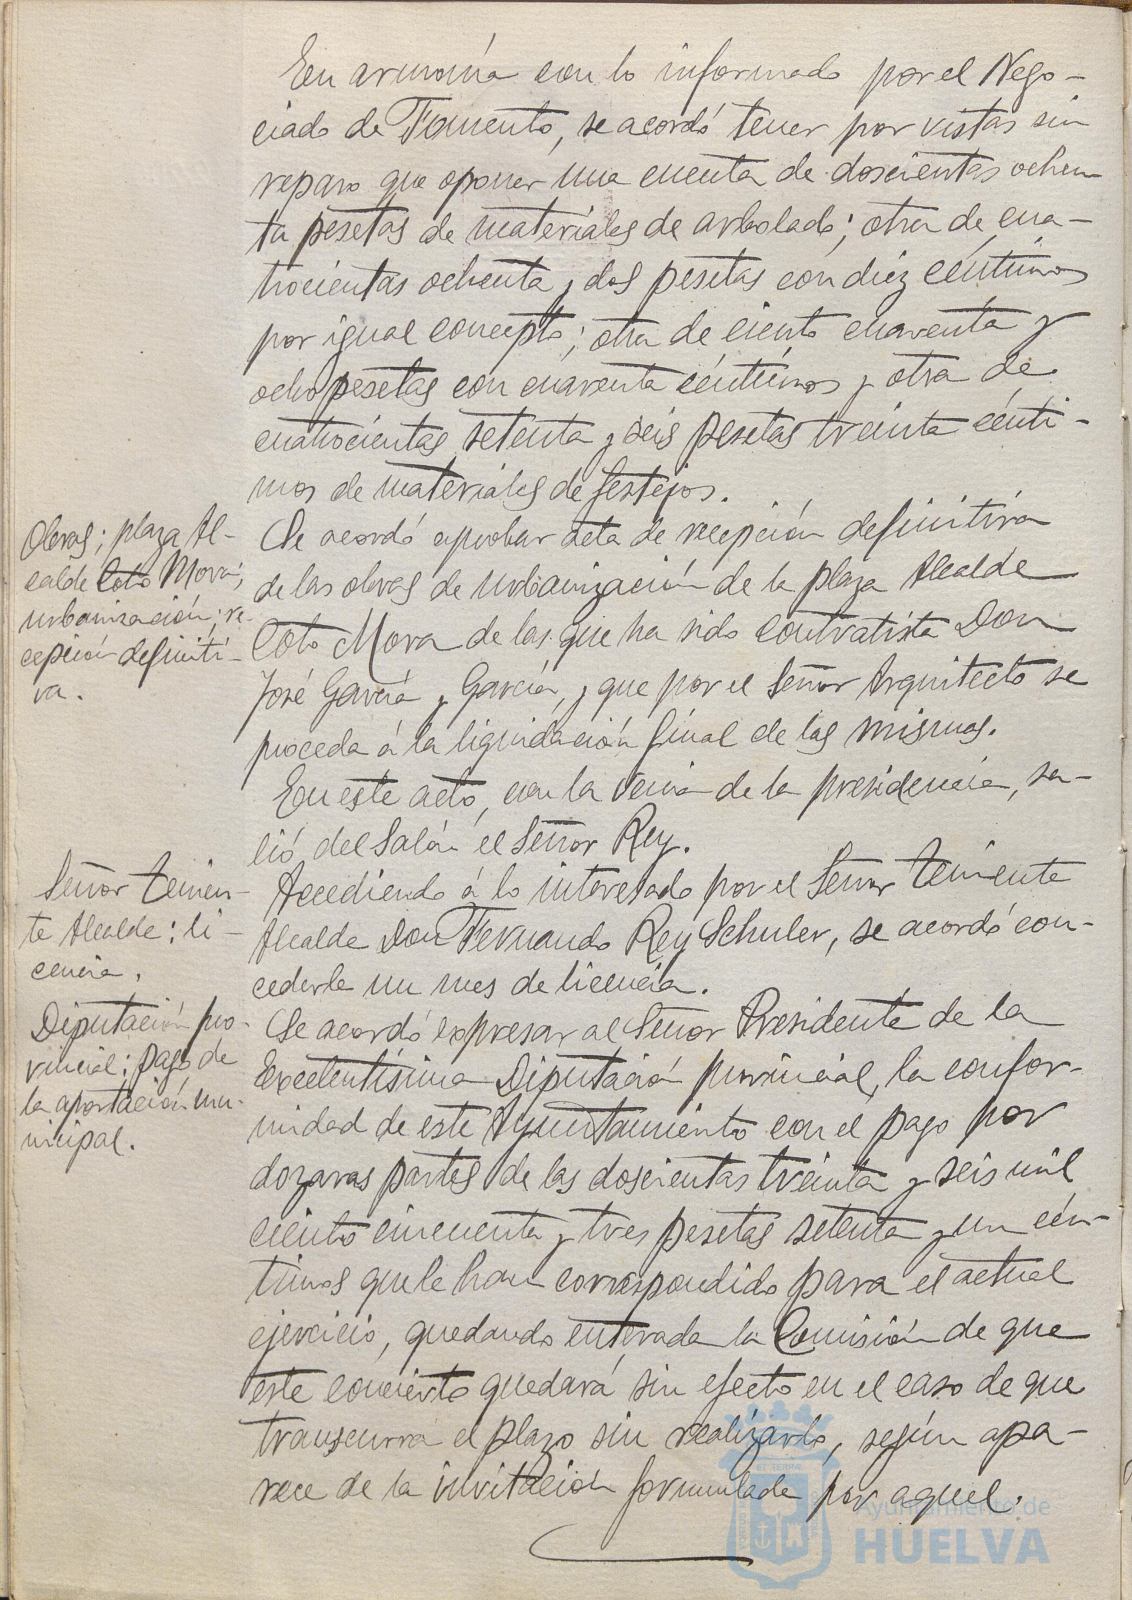 En armonía con lo informado por el Nego-
ciado de Fomento, se acordó tener por vistas sin
reparo que oponer una cuenta de doscientas ochen
ta pesetas de materiales de arbolado; otra de cua-
trocientas ochenta y dos pesetas con diez céntimos
por igual concepto; otra de ciento cuarenta y
ocho pesetas con cuarenta céntimos y otra de
cuatrocientas setenta y seis pesetas treinta cénti-
mos de materiales de festejos.
Obras; plaza Al-
calde Coto Mora;
urbanización; re-
cepción definiti-
va.
Se acordó aprobar acta de recepción definitiva
de las obras de urbanización de la plaza Alcalde
Coto Mora de las que ha sido contratista Don
José García y García, y que por el Señor Arquitecto se
proceda á la liquidación final de las mismas.
En este acto, con la venia de la presidencia, sa-
lió del Salón el Señor Rey.
Señor Tenien-
te Alcalde: li-
cencia.
Accediendo á lo interesado por el Señor Teniente
Alcalde Don Fernando Rey Schuler, se acordó con-
cederle un mes de licencia.
Diputación pro-
vincial: pago de
la aportación mu-
nicipal.
Se acordó expresar al Señor Presidente de la
Excelentísima Diputación provincial, la confor-
midad de este Ayuntamiento con el pago por
dozavas partes de las doscientas treinta y seis mil
ciento cincuenta y tres pesetas setenta y un cén-
timos que le han correspondido para el actual
ejercicio, quedando enterada la Comisión de que
este concierto quedará sin efecto en el caso de que
transcurra el plazo sin realizarlo, según apa-
rece de la invitación formulada por aquel.
Ayuntamiento de
HUELVA